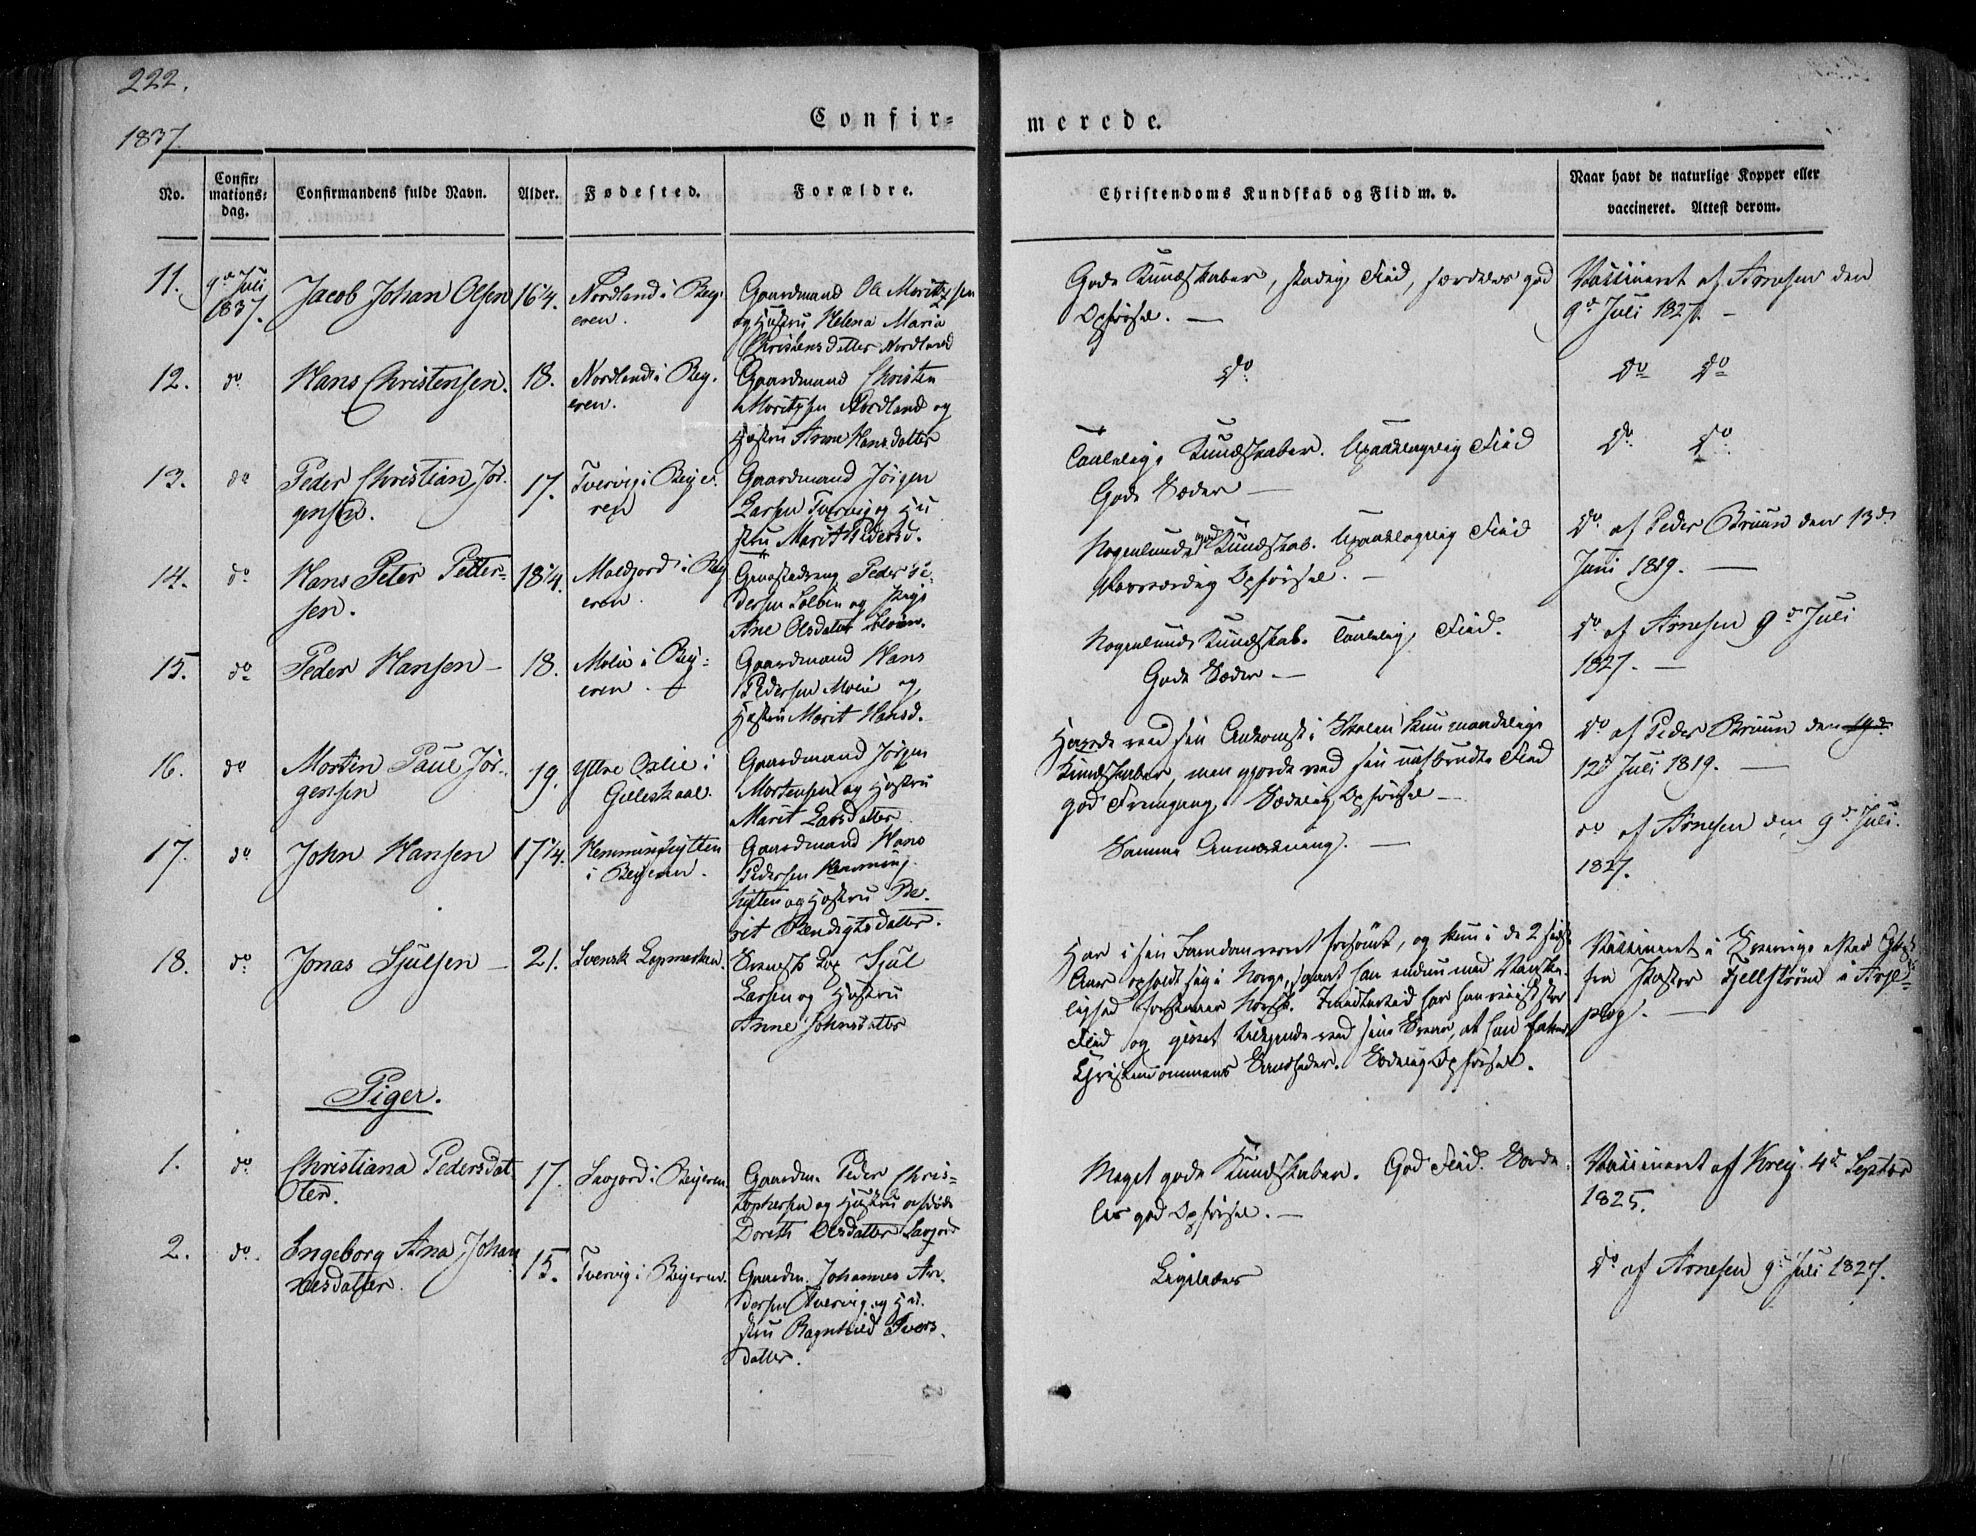 222.
1837
Confir=
merede.
No.
Confir=
mations=
dag.
Confirmandens fulde Navn.
Alder.
Fødested.
Forældre.
Christendoms Kundskab og Flid m. v.
Naar havt de naturlige Kopper eller
vaccineret. Attest derom.
11.
9de Juli
1837.
Jacob Johan Olsen
16¼.
Nordland i Bej.
eren.
Gaardmand Ole Moritzsen
og Hustru Helena Maria
Christensdatter Nordland
Gode Kundskaber, stadig Flid, særdeles god
Opførsel. —
Vaccineret af Arnesen den
9de Juli 1827. —
12.
do
Hans Christensen.
18.
Nordland i Bej.
eren.
Gaardmand Christen
Moritzsen Nordland og
Hustru Anne Hansdatter
Do
Do Do
13.
do
Peder Christian Jör-
gensen.
17.
Tvervig i Beje-
ren
Gaardmand Jörgen
Larsen Tvervig og Hu
stru Marit Pedersd.
Taalelige Kundskaber. Upaaklagelig Flid
Gode Sæder —
Do Do
14.
do
Hans Peter Petter=
sen.
18¼.
Moldjord i Bej
eren.
Peder Pe-
dersen og Pige
Ane Olsdatter
Nogenlunde god Kundskab. Upaaklagelig Flid
Opførsel. —
Do af Peder Bruun den 13de
Juni 1819. —
15.
do
Peder Hansen —
18.
Molie i Bej=
eren.
Gaardmand Hans
Pedersen Molie og
Hustru Marit Hansd.
Nogenlunde Kundskab. Taalelig Flid.
Gode Sæder —
Do af Arnesen 9de Juli
1827. —
16.
do
Morten Paul Jör-
gensen
19.
Yttre Oxlie i
Gilleskaal.
Gaardmand Jörgen
Mortensen og Hustru
Marit Larsdatter
Havde ved sin Ankomst i Skolen kun maadelige
Kundskaber, men gjorde ved sin uafbrudte Flid
god Fremgang. Sædelig Opførsel —
Do af Peder Bruun den
12te Juli 1819. —
17.
do
John Hansen
17¼.
Hemminghytten
i Bejeren.
Gaardmand Hans
Pedersen Hemming-
hytten og Hustru Be-
rit Bendigtsdatter.
Samme Anmærkning. —
do af Arnesen den 9de Juli.
1827.
18.
do
Jonas Sjulsen —
21.
Svensk Lapmarken.
Svensk Lap Sjul
Larsen og Hustru
Anne Johnsdatter
Har i sin Barndom været forsömt, og kun i de 2 sidste
Aar opholdt sig i Norge, saa at han endnu med Vanske-
lighed forstaaer Norsk. Imidlertid har han viist stor
Flid og givet tilkjende ved sine Svar, at han fatter
Christendommens Sandheder. Sædelig Opførsel.
Vaccineret i Sverige efter
fra Pastor Fjellström i Arje-
plog. —
Piger.
1.
do
Christiana Pedersdat
ter.
17.
i Bejeren
Gaardm. Peder Chris=
tophersen og Hustru afdöde
Doreth Olsdatter
Meget gode Kundskaber. God Flid. Særde
les god Opførsel. —
Vaccineret af Krey 4de Septbr
1825.
2.
do.
Ingeborg Ana Johan
nesdatter.
15.
Tvervig i Bejeren.
Gaardm. Johannes An-
dersen Tvervig og Hu-
stru Ragnhild Ivers-
datter.
Ligeledes
Do af Arnesen 9de Juli 1827.